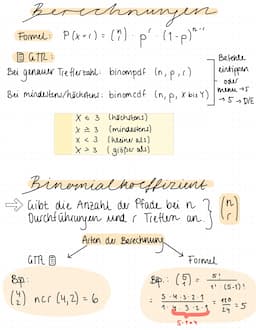 Berechnungen
Formel: P(X=r) = (n r) · p^r · (1-p)^n-r
GTR:
Bei genauer Trefferzahl: binompdf (n, p, r)
Bei mindestens/höchstens: binomcdf (n, p, X bis Y)
Befehle
eintippen
oder
menu → 5
→ 5 → D/E
X ≤ 3 (höchstens)
X ≥ 3 (mindestens)
X < 3 (kleiner als)
X > 3 (größer als)
Binomialkoeffizient
⇒ Gibt die Anzahl der Pfade bei n
Durchführungen und r Treffern an.
(n r)
Arten der Berechnung
GTR
Bsp.:
(4 2) ncr (4,2) = 6
Formel
Bsp.: (5 1) = 5! / 1! · (5-1)!
= 5·4·3·2·1 / 1·4·3·2·1 = 120 / 24 = 5
5-1=4